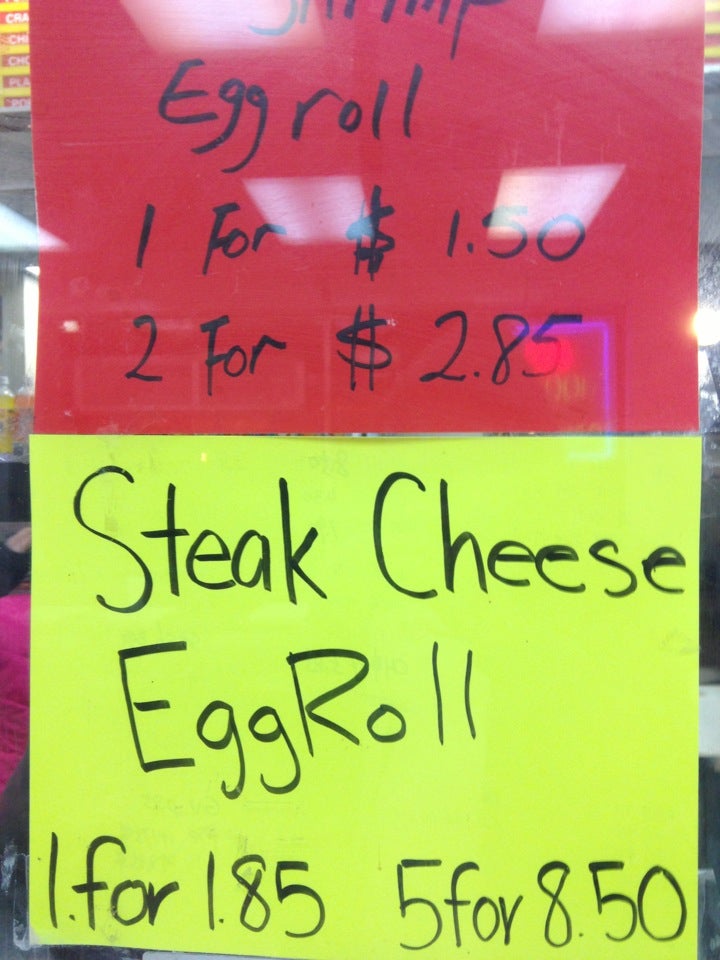 Shrimp
Egg roll
1 For $ 1.50
2 For $ 2.85
Steak Cheese
EggRoll
1.for 1.85 5 for 8.50